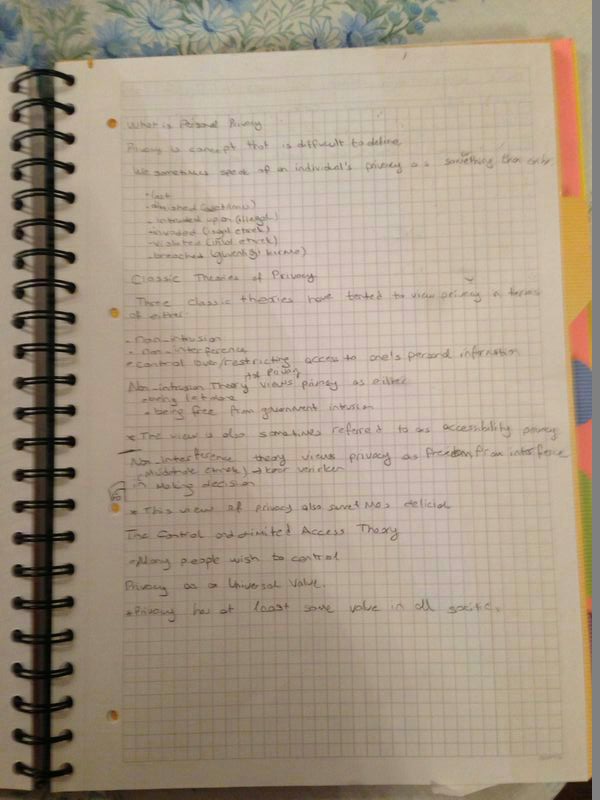 What is Personal Privacy
Privacy is concept that is difficult to define
We sometimes speak of an individual's privacy as a something that can be
- lost
- diminished
- intruded upon (illegal)
- invaded (ihlal etmek)
- violated (ihlal etmek)
- breached
Classic Theories of Privacy
Three classic theories have tented to view privacy in terms
of either
- non-intrusion
- non-interference
• control over/restricting access to one's personal information
Non-intrusion Theory views privacy as either
• being let alone
• being free from government intrusion
* The view is also sometimes referred to as accessibility privacy
Non-interference theory views privacy as freedom from interfere
(müdahale etmek) → karar verirken
in making decision
* This view of privacy also
The Control and Limited Access Theory
• Many people wish to control
Privacy as a Universal Value.
* Privacy has at least some value in all